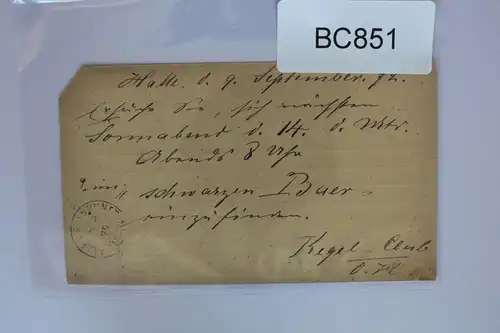 BC851
Halle d. 9. September 72.
Ersuche Sie, sich nächsten
Sonnabend d. 14. d. Mts.
Abends 8 Uhr
im „schwarzen Baer"
einzufinden.
Kegel-Club